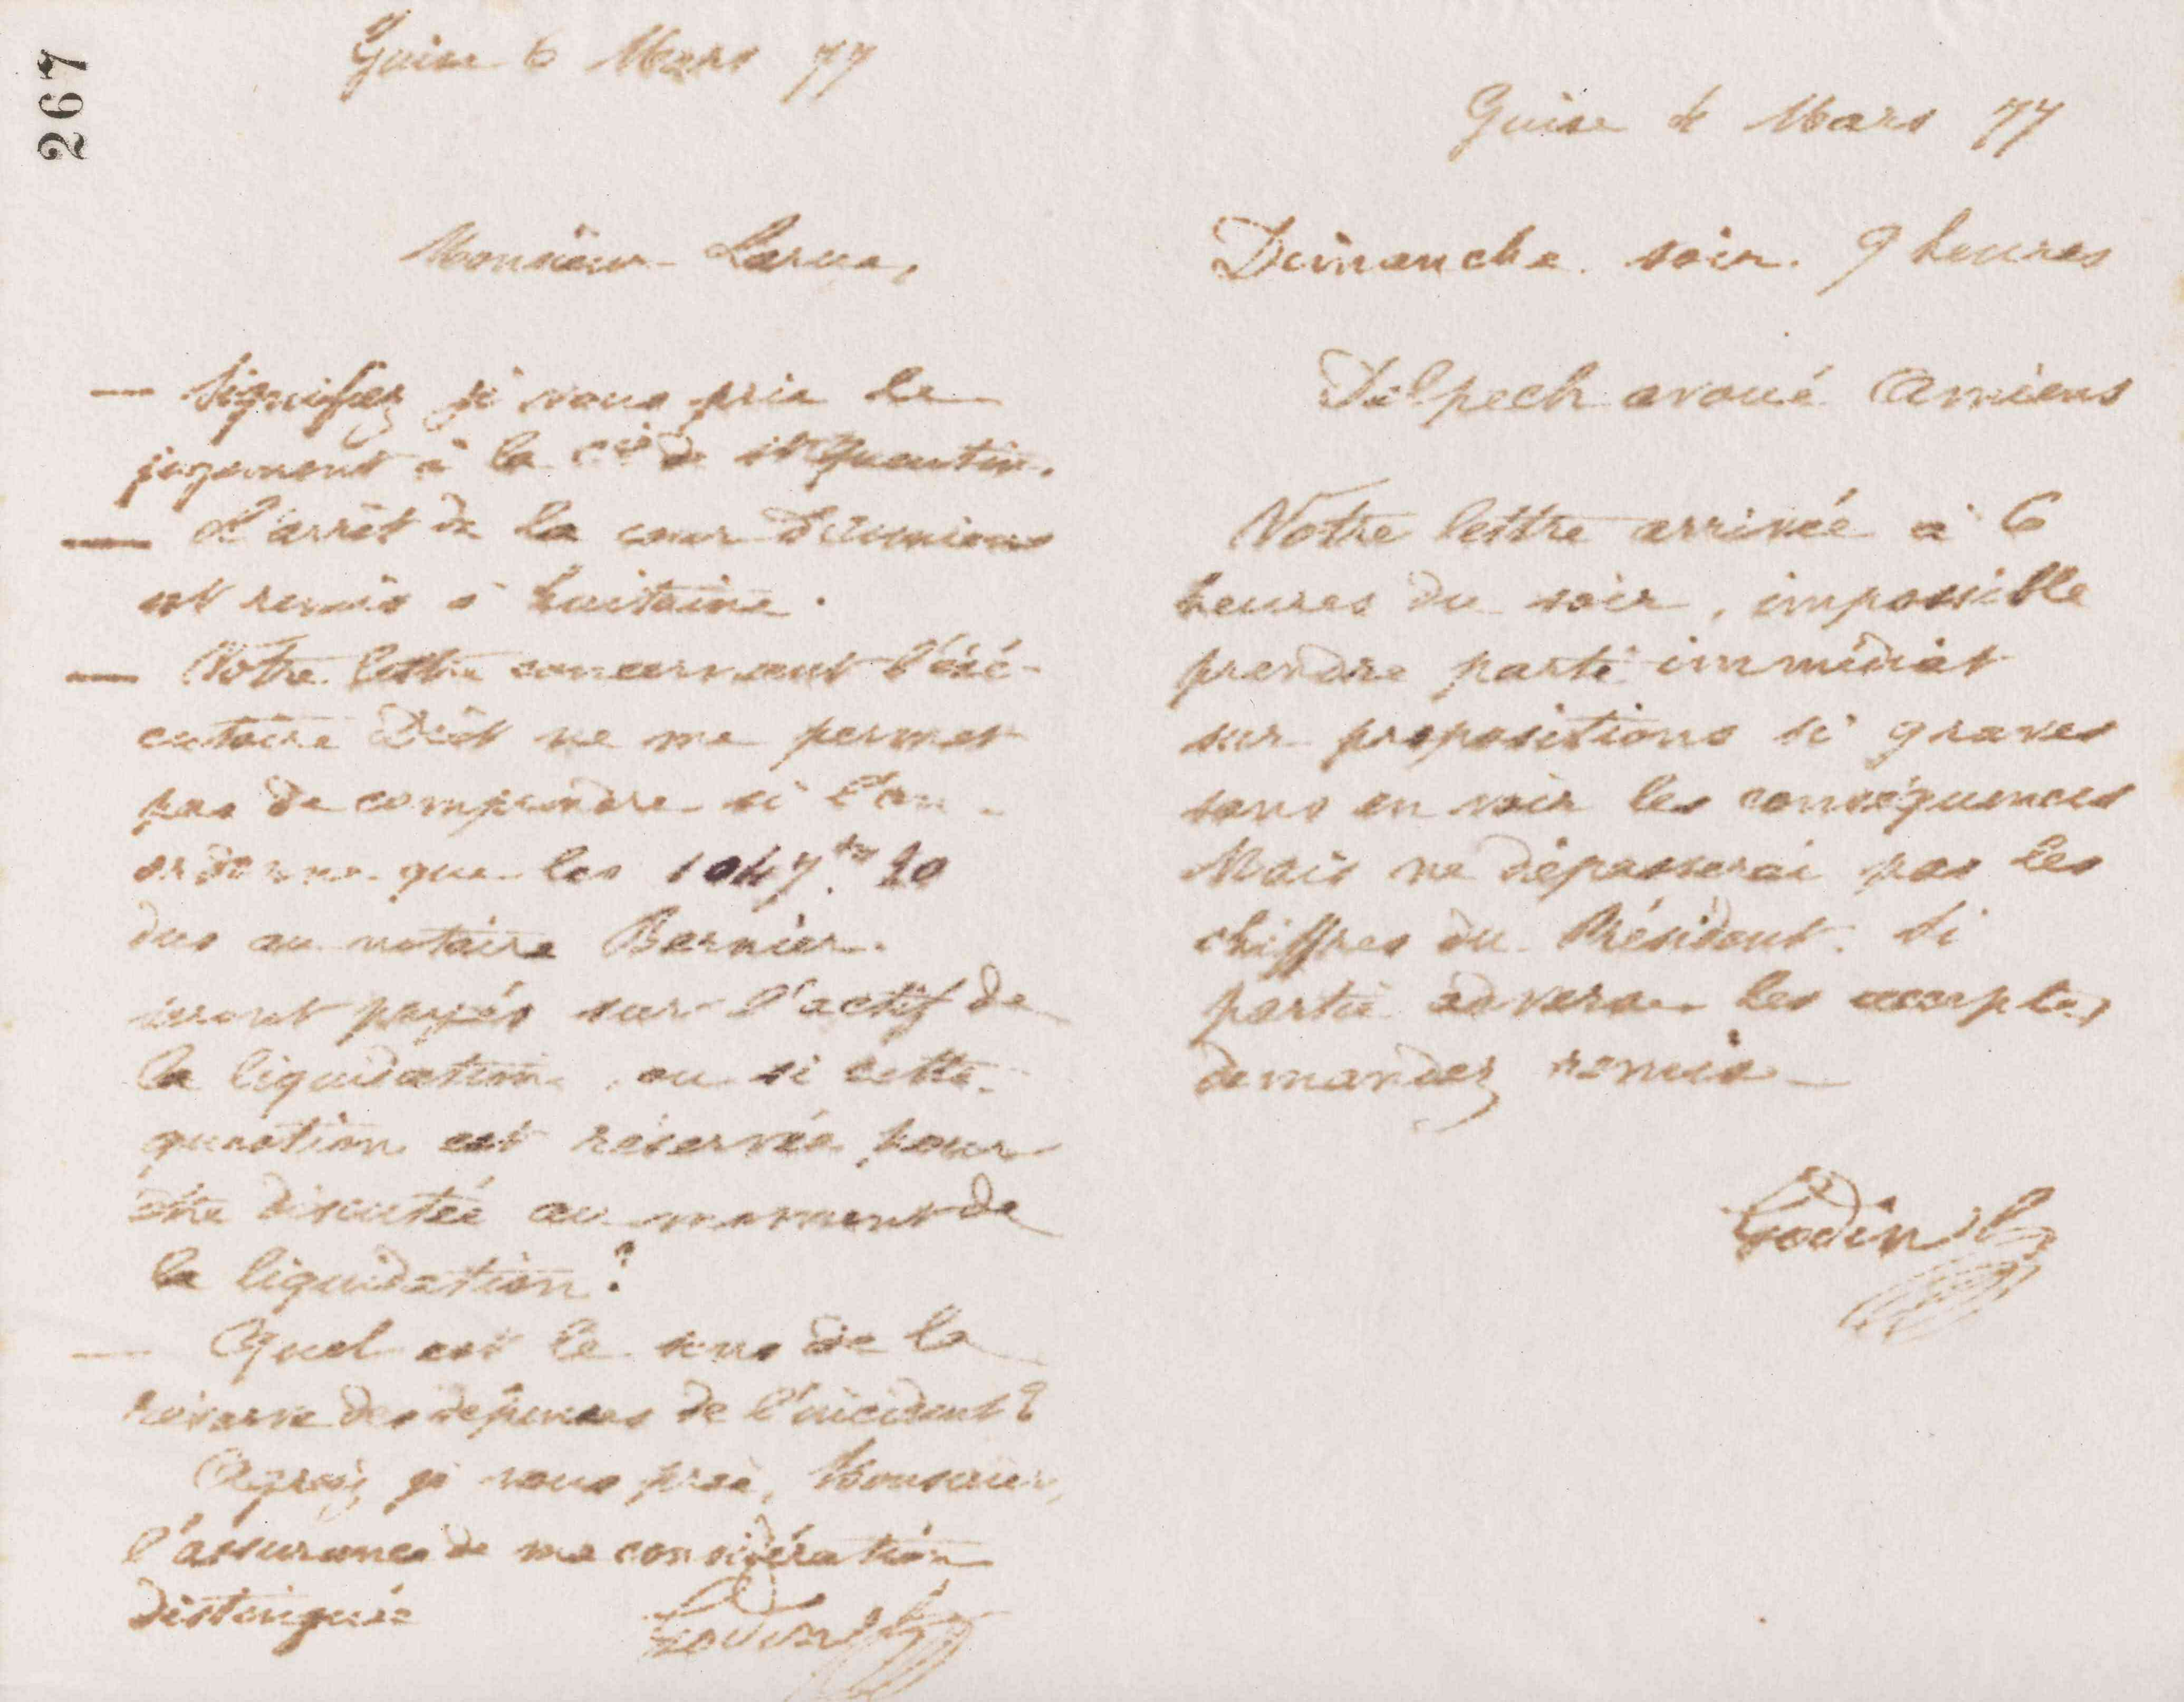 267
Guise 6 Mars 77
Monsieur Larue,
— Signifiez je vous prie le
jugement à la Cie de St Quentin.
— L'arrêt de la cour d'Amiens
est remis à huitaine.
— Votre lettre concernant l'éxé-
cutoire Doit ne me permet
pas de comprendre si l'on
ordonne que les 1047 fr 20
dus au notaire Bernier.
seront payés sur l'actif de
la liquidation, ou si cette
question est réservée pour
être discutée au moment de
la liquidation?
— Quel est le sens de la
réserve des dépenses de l'incident?
Agréez je vous prie, Monsieur,
l'assurance de ma considération
distinguée
Godin
Guise 4 Mars 77
Dimanche soir. 9 heures
Delpech avoué Amiens
Votre lettre arrivée à 6
heures du soir, impossible
prendre parti immédiat
sur propositions si graves
sans en voir les conséquences
Mais ne dépasserai pas les
chiffres du Président. Si
partie adverse les accepte,
demandez remise —
Godin